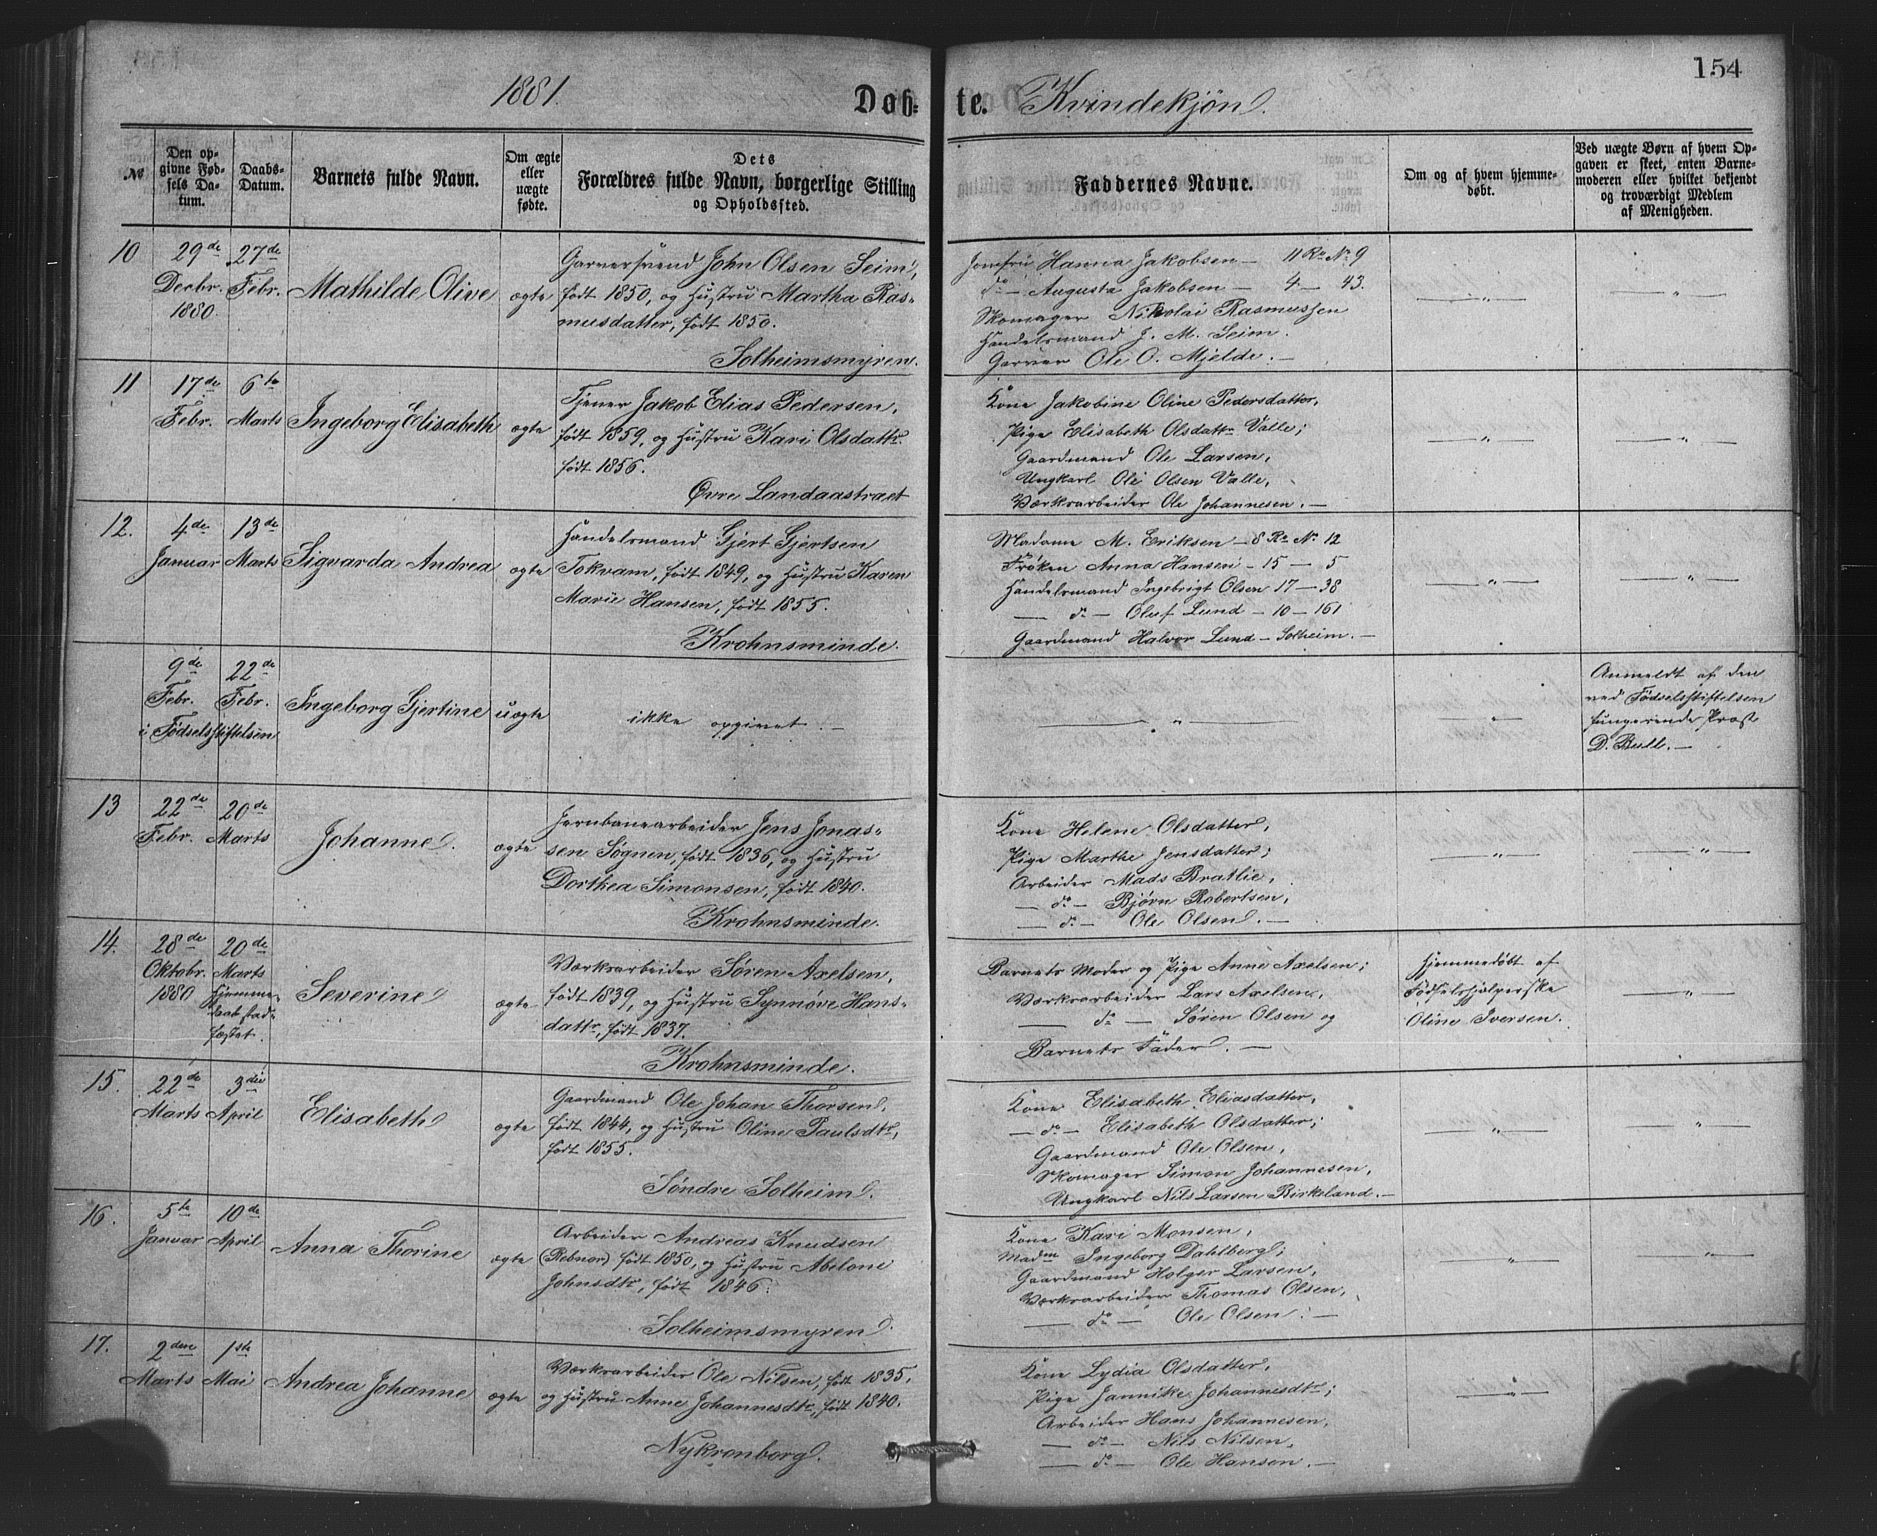 1881.
Døb-
te.
Kvindekjøn.
154
№
Den op-
givne Fød-
sels Da-
tum.
Daabs-
Datum.
Barnets fulde Navn.
Om ægte
eller
uægte
fødte.
Dets
Forældres fulde Navn, borgerlige Stilling
og Opholdssted.
Faddernes Navne.
Om og af hvem hjemme-
døbt.
Ved uægte Børn af hvem Op-
gaven er skeet, enten Barne-
moderen eller hvilket bekjendt
og troværdigt Medlem
af Menigheden.
10
29de
Decbr.
1880
27de
Febr.
Mathilde Olive
ægte
Garversvend John Olsen Seim,
født 1850, og Hustru Martha Ras-
musdatter, født 1850.
Solheimsmyren.
Jomfru Hanna Jakobsen — 11 Ro № 9
do — Augusta Jakobsen — 4 — 43.
Skomager Nikolai Rasmussen
Handelsmand J. M. Seim.
Garver Ole O. Mjelde. —
— " —
— " —
11
17de
Febr.
6te
Marts
Ingeborg Elisabeth
ægte
Tjener Jakob Elias Pedersen,
født 1859, og Hustru Kari Olsdattr
født 1856.
Øvre Landaastræt
Kone Jakobine Oline Pedersdatter,
Pige Elisabeth Olsdattr Valle;
Gaardmand Ole Larsen,
Ungkarl Ole Olsen Valle,
Værksarbeider Ole Johannesen. —
— " —
— " —
12.
4de
Januar
13de
Marts
Sigvarda Andrea
ægte
Handelsmand Gjert Gjertsen
Tokvam, født 1849, og Hustru Karen
Marie Hansen, født 1855.
Krohnsminde.
Madame M. Eriksen — 8 Ro № 12
Frøken Anna Hansen — 15 — 5
Handelsmand Ingebrigt Olsen 17 — 38
— do — Oluf Lund — 10 — 161
Gaardmand Halvor Lund — Solheim. —
— " —
— " —
9de
Febr.
i Fødselsstiftelsen
22de
Febr.
Ingeborg Gjertine
uægte
ikke opgivet. —
— " —
"
Anmeldt af den
ved Fødselsstiftelsen
fungerende Præst
D. Bull. —
13
22de
Febr.
20de
Marts
Johanne.
ægte
Jernbanearbeider Jens Jonas-
sen Søgnen, født 1836, og Hustru
Dorthea Simonsen, født 1840.
Krohnsminde.
Kone Helene Olsdatter,
Pige Marthe Jensdatter;
Arbeider Mads Bratlie,
— do — Bjørn Robertsen,
— do — Ole Olsen. —
— " —
— " —
14.
28de
Oktobr.
1880
20de
Marts
Hjemme-
daab stad-
fæstet.
Severine
ægte
Værksarbeider Søren Axelsen,
født 1839, og Hustru Synnøve Hans-
dattr, født 1837.
Krohnsminde.
Barnets Moder og Pige Anne Axelsen;
Værksarbeider Lars Axelsen,
— do — Søren Olsen og
Barnets Fader. —
Hjemmedøbt af
Fødselshjælperske
Oline Iversen.
— " —
15.
22de
Marts
3die
April
Elisabeth
ægte
Gaardmand Ole Johan Thorsen,
født 1844, og Hustru Oline Paulsdtr,
født 1855.
Søndre Solheim.
Kone Elisabeth Eliasdatter,
— do — Elisabeth Olsdatter;
Gaardmand Ole Olsen,
Skomager Simon Johannesen,
Ungkarl Nils Larsen Birkeland. —
— " —
— " —
16.
5te
Januar
10de
April
Anna Thorine
ægte
Arbeider Andreas Knudsen
(Rebnor) født 1850, og Hustru Abelone
Johnsdtr, født 1846.
Solheimsmyren.
Kone Kari Monsen,
Madm Ingeborg Dahlberg;
Gaardmand Holger Larsen,
Værksarbeider Thomas Olsen,
— do — Ole Olsen. —
— " —
— " —
17.
2den
Marts
1ste
Mai
Andrea Johanne
ægte
Værksarbeider Ole Nilsen, født 1835,
og Hustru Anne Johannesdtr, født 1840.
Nykronborg.
Kone Lydia Olsdatter,
Pige Jannike Johannesdtr;
Arbeider Hans Johannesen,
— do — Nils Nilsen,
— do — Ole Hansen. —
— " —